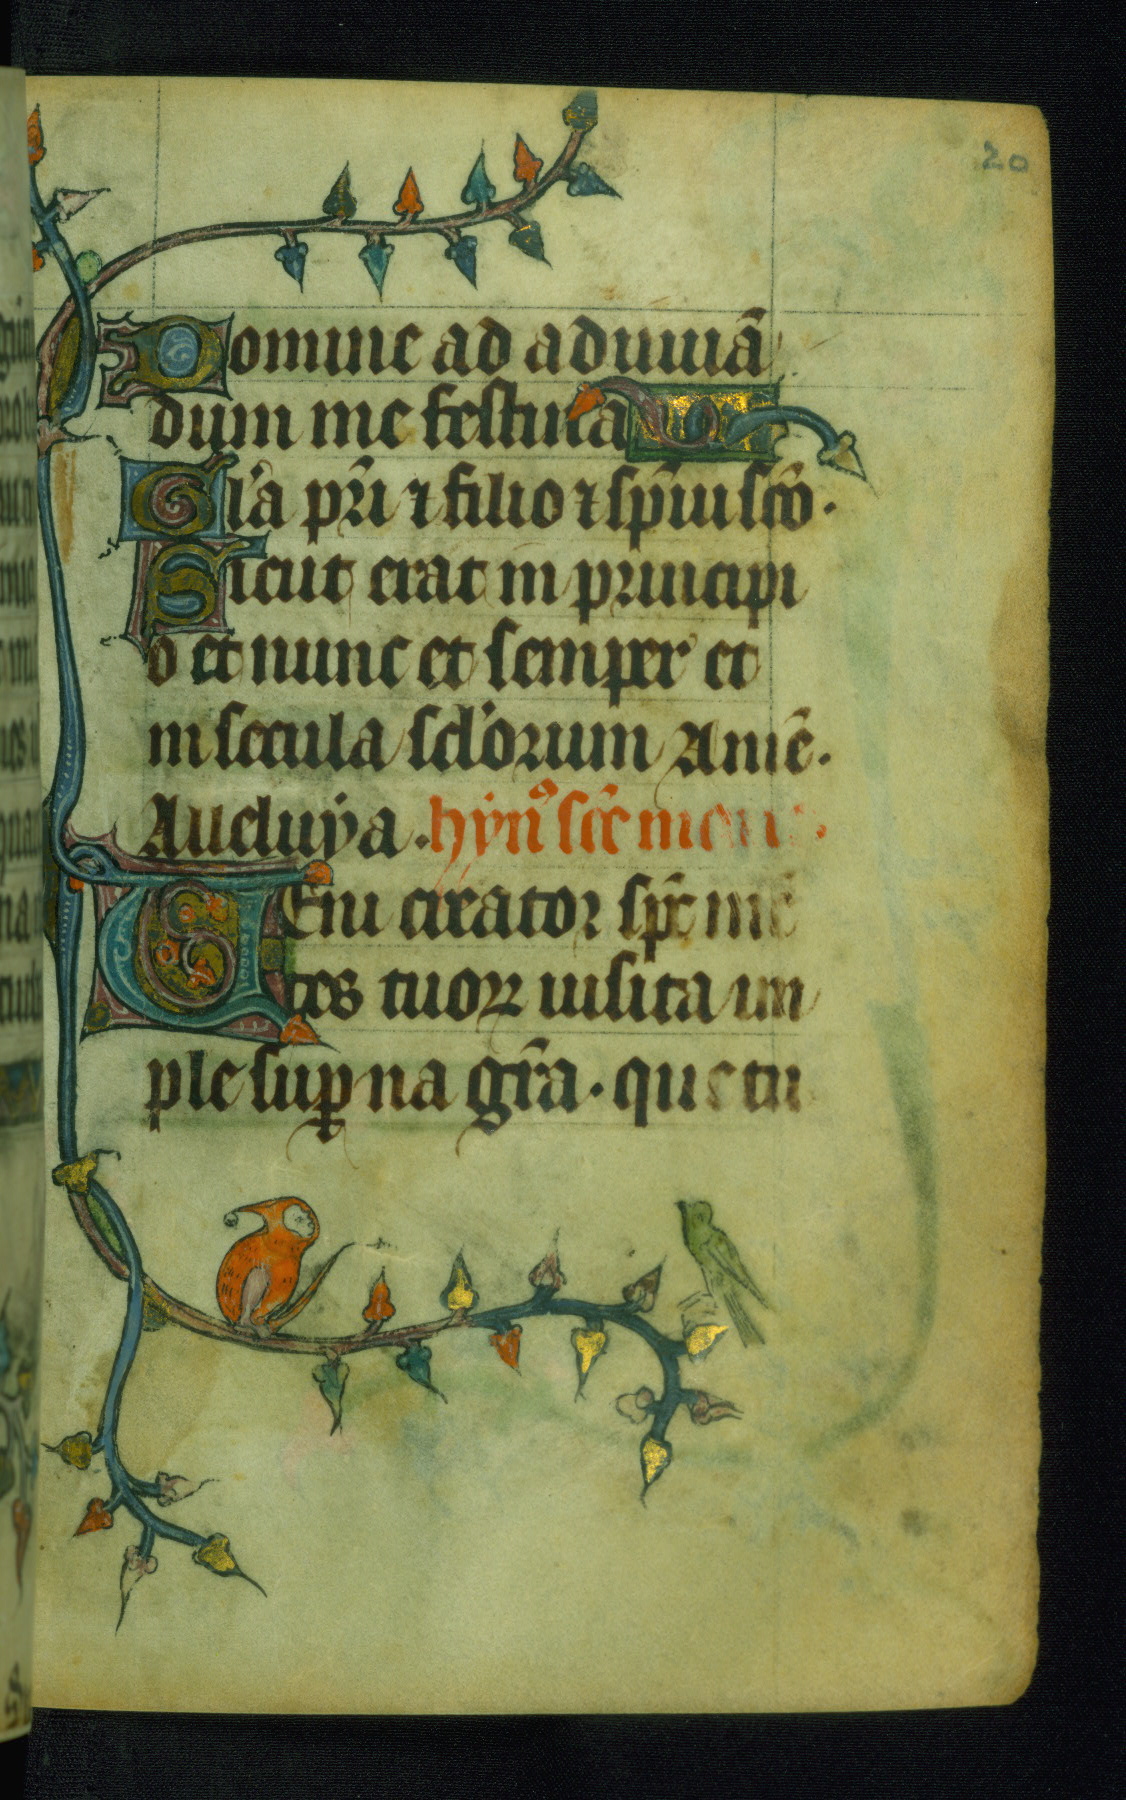 20
Domine ad adiuuā
dum me festina
Gl'a pr̄i ⁊ filio ⁊ sp̄iui sc̄o.
Sicut erat in principi
o et nunc et semper et
in secula scl'orum Amē.
Alleluẏa. hẏn᷒ sc̄e marie.
UEni creator sp̄c mē
tes tuoꝝ uisita im
ple suꝑna gr̄a. que tu